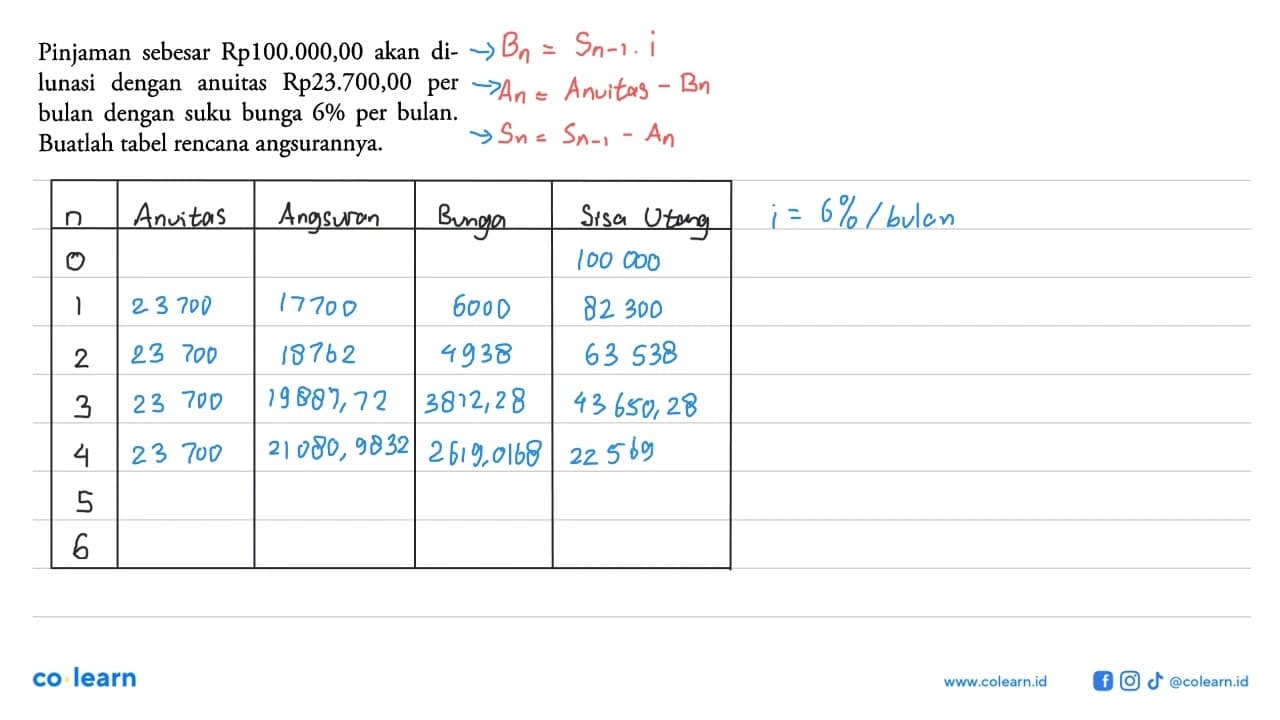 Pinjaman sebesar Rp100.000,00 akan di-
lunasi dengan anuitas Rp23.700,00 per
bulan dengan suku bunga 6% per bulan.
Buatlah tabel rencana angsurannya.
→ Bn = Sn-1 . i
→ An = Anuitas - Bn
→ Sn = Sn-1 - An
n Anuitas Angsuran Bunga Sisa Utang
i = 6% / bulan
0 100 000
1 23 700 17700 6000 82 300
2 23 700 18762 4938 63 538
3 23 700 19887,72 3812,28 43 650,28
4 23 700 21080,9832 2619,0168 22 569
5
6
co learn
www.colearn.id
@colearn.id